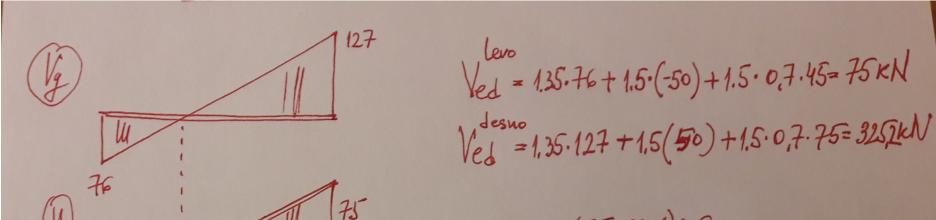 Vg
127
76
75
levo
Ved = 1.35·76 + 1.5·(-50) + 1.5·0,7·45 = 75 kN
desno
Ved = 1,35·127 + 1,5(50) + 1,5·0,7·75 = 325,2 kN